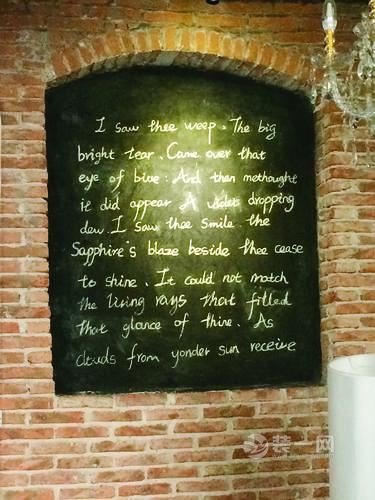 I saw thee weep. The big
bright tear. Came over that
eye of blue: And then methought
it did appear A violet dropping
dew. I saw thee smile. the
Sapphire's blaze beside thee cease
to shine. It could not match
the living rays that filled
that glance of thine. As
clouds from yonder sun receive
装一网